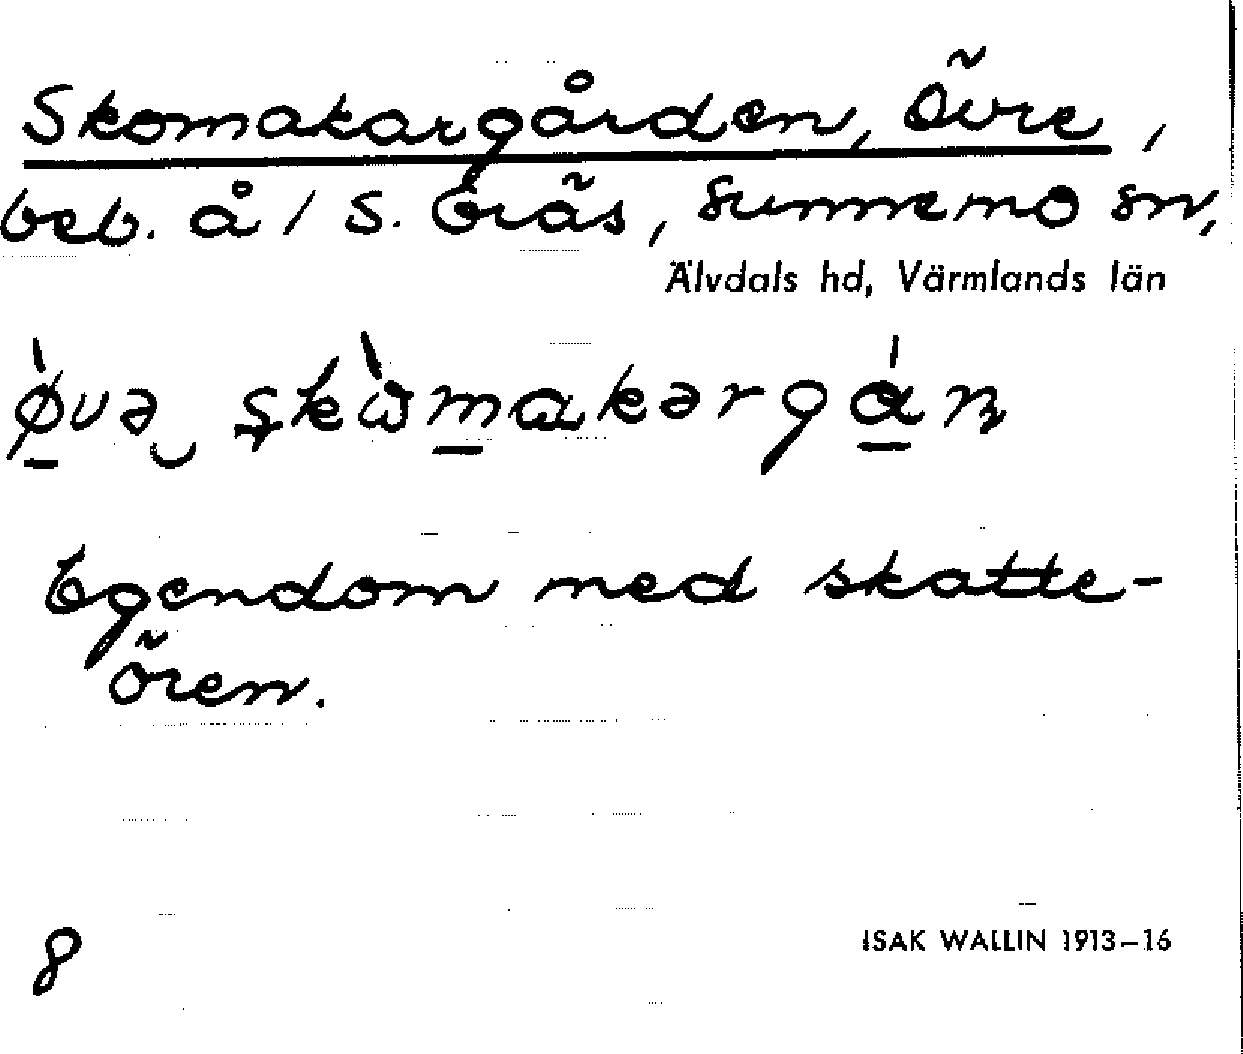 Skomakargården, Övre,
beb. å / S. Gräs, Sunnemo sn,
Älvdals hd, Värmlands län
Egendom med skatte-
ören.
8
ISAK WALLIN 1913–16